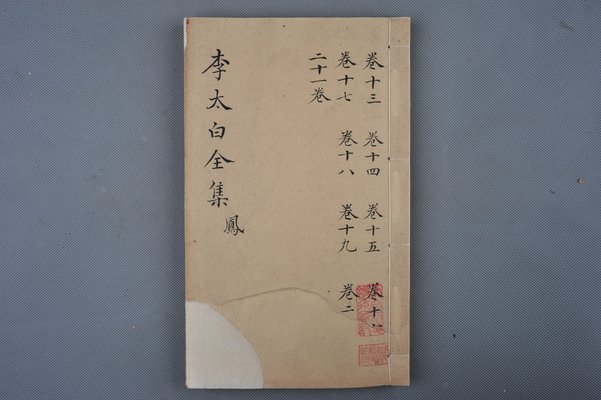 卷十三 卷十四 卷十五 卷十
卷十七 卷十八 卷十九 卷二
二十一卷
李太白全集
鳳